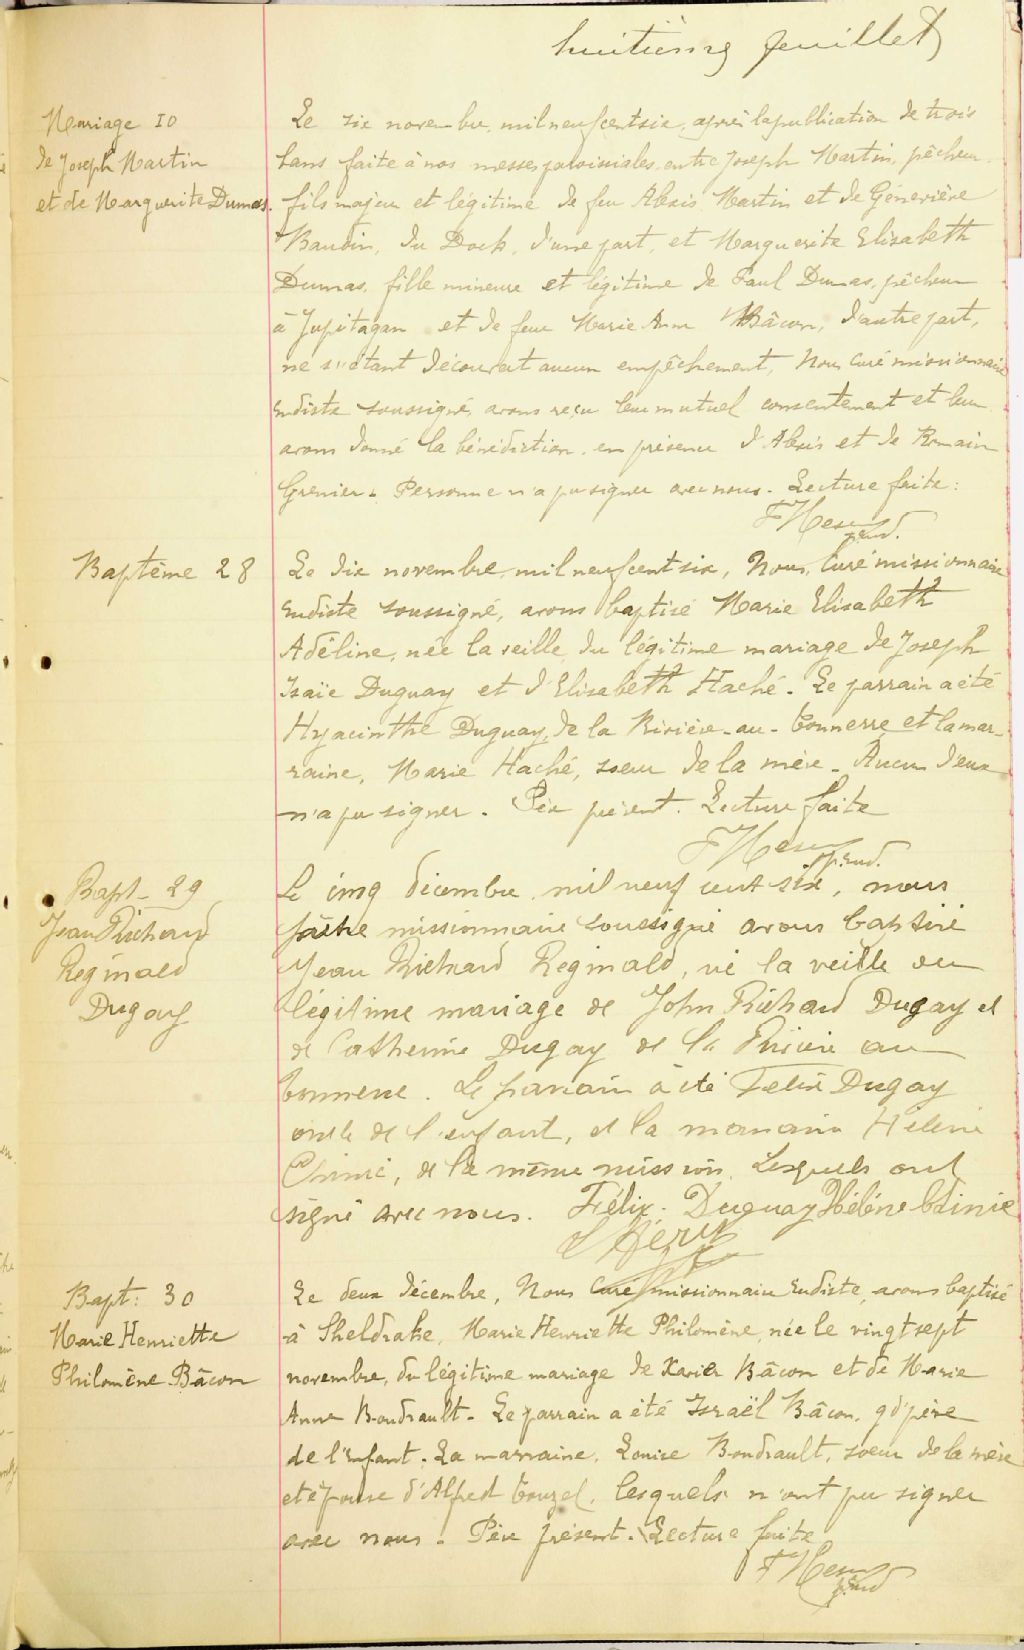 huitième feuillet
Mariage 10
de Joseph Martin
et de Marguerite Dumas.
Le six novembre, mil neuf cent six, après la publication de trois
bans faite à nos messes paroissiales entre Joseph Martin, pêcheur
fils majeur et légitime de feu Alexis Martin et de Géneviève
Baudin, du Dock, d'une part, et Marguerite Elisabeth
Dumas, fille mineure et légitime de Paul Dumas, pêcheur
à Jupitagan et de feue Marie Ann Bâcon, d'autre part,
ne s'étant découvert aucun empêchement, Nous Curé missionnaire
Eudiste soussigné, avons reçu leur mutuel consentement et leur
avons donné la bénédiction en présence d'Alexis et de Romain
Grenier. Personne n'a pu signer avec nous. Lecture faite:
Baptême 28
Le dix novembre, mil neuf cent six, Nous, Curé missionnaire
Eudiste soussigné, avons baptisé Marie Elisabeth
Adéline, née la veille, du légitime mariage de Joseph
Isaïe Duguay et d'Elisabeth Haché. Le parrain a été
Hyacinthe Duguay, de la Rivière-au-Tonnerre et la mar-
raine, Marie Haché, soeur de la mère. Aucun d'eux
n'a pu signer. Père présent. Lecture faite
Bapt. 29
Jean Richard
Reginald
Dugay
Le cinq décembre mil neuf cent six, nous
prêtre missionnaire soussigné avons baptisé
Jean Richard Reginald, né la veille du
légitime mariage de John Richard Dugay et
de Catherine Dugay de la Rivière au
Tonnerre. Le parrain a été Felix Dugay
oncle de l'enfant, et la marraine Hélène
, de la même mission. Lesquels ont
signé avec nous. Félix. Duguay Hélène
Bapt: 30
Marie Henriette
Philomène Bâcon
Le deux décembre, Nous Curé missionnaire Eudiste, avons baptisé
à Sheldrake, Marie Henriette Philomène, née le vingt sept
novembre, du légitime mariage de Xavier Bâcon et de Marie
Anne Boudrault. Le parrain a été Israël Bâcon, gd'père
de l'enfant. La marraine, Louise Boudrault, soeur de la mère
et épouse d'Alfred Touzel, lesquels n'ont pu signer
avec nous. Père présent. Lecture faite